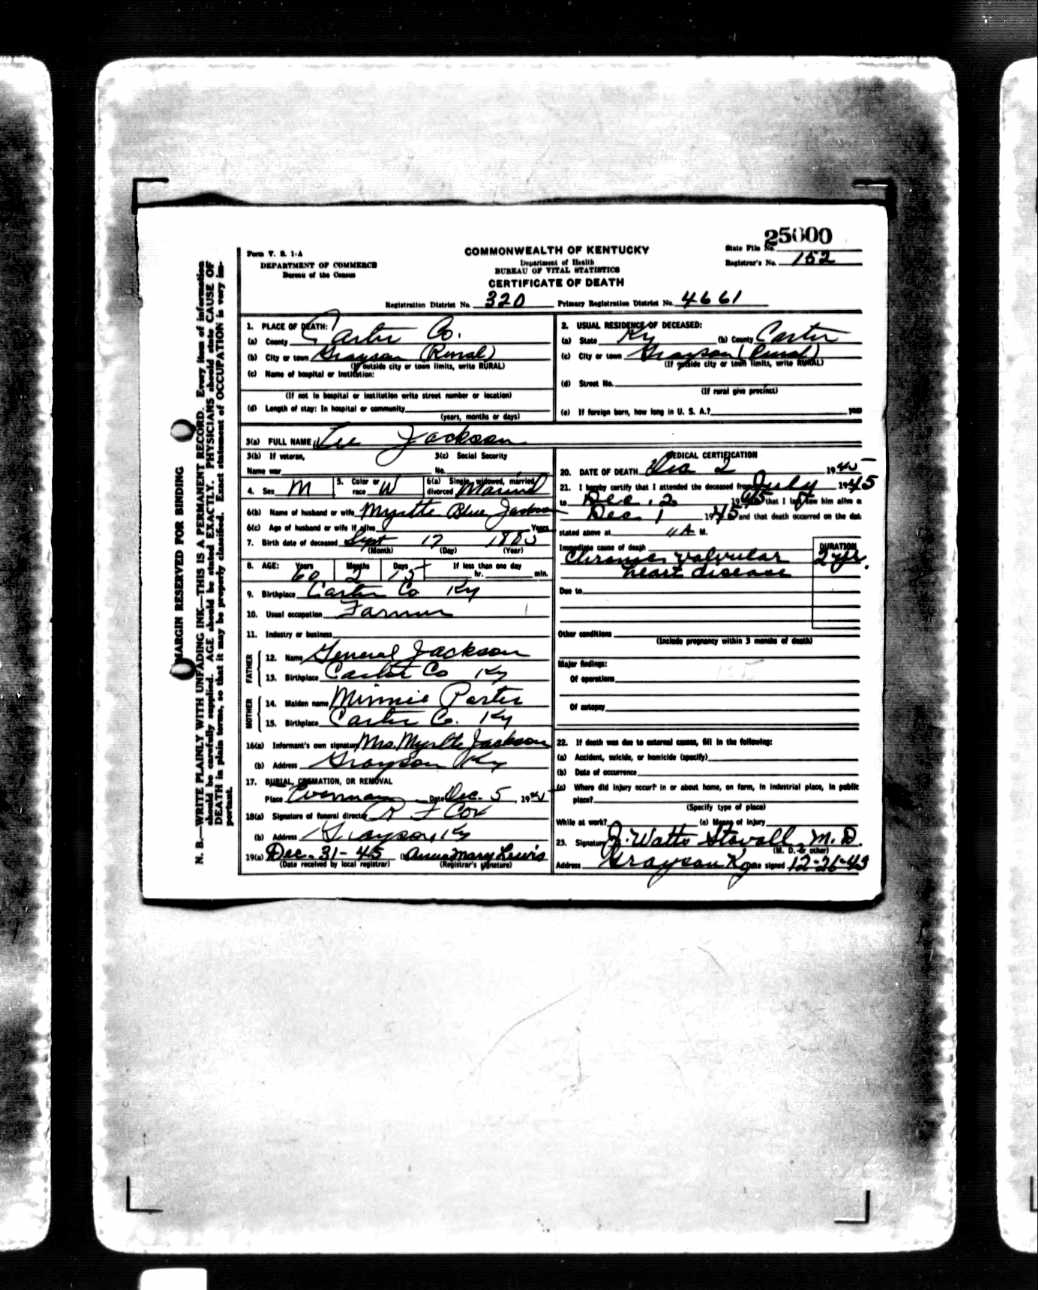 25000
Form V. S. 1-A
COMMONWEALTH OF KENTUCKY
State File No.
DEPARTMENT OF COMMERCE
Department of Health
Bureau of the Census
BUREAU OF VITAL STATISTICS
Registrar's No. 152
CERTIFICATE OF DEATH
Registration District No. 320 Primary Registration District No. 4661
N. B.—WRITE PLAINLY WITH UNFADING INK—THIS IS A PERMANENT RECORD. Every item of information
should be carefully supplied. AGE should be stated EXACTLY. PHYSICIANS should state CAUSE OF
DEATH in plain terms, so that it may be properly classified. Exact statement of OCCUPATION is very im-
portant.
MARGIN RESERVED FOR BINDING
1. PLACE OF DEATH:
(a) County Carter Co.
(b) City or town Grayson (Rural)
(If outside city or town limits, write RURAL)
(c) Name of hospital or institution:
(If not in hospital or institution write street number or location)
(d) Length of stay: In hospital or community
(years, months or days)
2. USUAL RESIDENCE OF DECEASED:
(a) State Ky (b) County Carter
(c) City or town Grayson (Rural)
(If outside city or town limits, write RURAL)
(d) Street No.
(If rural give precinct)
(e) If foreign born, how long in U. S. A.? years
3(a) FULL NAME Lee Jackson
3(b) If veteran, 3(c) Social Security
Name war No.
4. Sex M 5. Color or race W 6(a) Single, widowed, married, divorced Married
6(b) Name of husband or wife Myrtle Blue Jackson
6(c) Age of husband or wife if alive Years
7. Birth date of deceased Sept 17 1885
(Month) (Day) (Year)
8. AGE: Years Months Days If less than one day
60 2 15 hr. min.
9. Birthplace Carter Co Ky
10. Usual occupation Farmer
11. Industry or business
FATHER
12. Name General Jackson
13. Birthplace Carter Co Ky
MOTHER
14. Maiden name Minnie Porter
15. Birthplace Carter Co. Ky
16(a) Informant's own signature Mrs. Myrtle Jackson
(b) Address Grayson Ky
17. BURIAL, CREMATION, OR REMOVAL
Place Everman Date Dec. 5 1945
18(a) Signature of funeral director R F Cox
(b) Address Grayson, Ky
19(a) Dec. 31-45 (b) Anna Mary Lewis
(Date received by local registrar) (Registrar's signature)
MEDICAL CERTIFICATION
20. DATE OF DEATH Dec 2 1945
21. I hereby certify that I attended the deceased from July 1945
to Dec. 2 1945 that I last saw him alive on
Dec 1 1945 and that death occurred on the date
stated above at M.
Immediate cause of death DURATION
Chronic valvular 2 yr.
heart disease
Due to
Other conditions
(Include pregnancy within 3 months of death)
Major findings:
Of operations
Of autopsy
22. If death was due to external causes, fill in the following:
(a) Accident, suicide, or homicide (specify)
(b) Date of occurrence
(c) Where did injury occur? in or about home, on farm, in industrial place, in public
place?
(Specify type of place)
While at work? (e) Means of injury
23. Signature J. Watts Stovall M. D.
(M. D. or other)
Address Grayson Ky Date signed 12-26-45